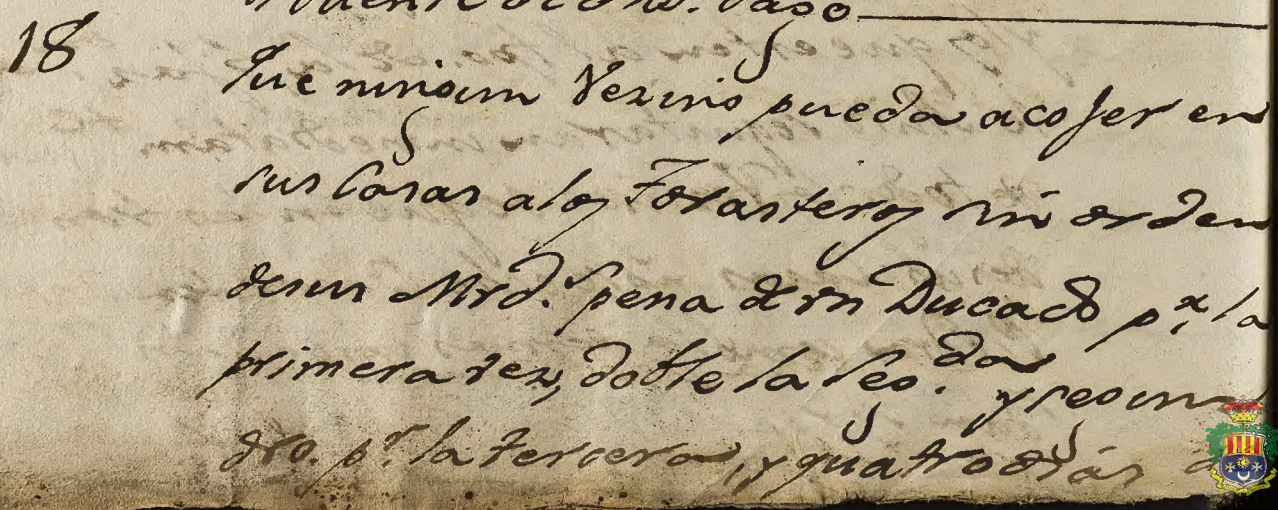 18
Que ningun Vezino pueda acojer en
sus Casas alos Forasteros sin orden
desus Mrd.ˢ pena de vn Ducado p.ʳ la
primera vez, doble la seg.da y segun
dro. p.ʳ la tercera, y quatro dias